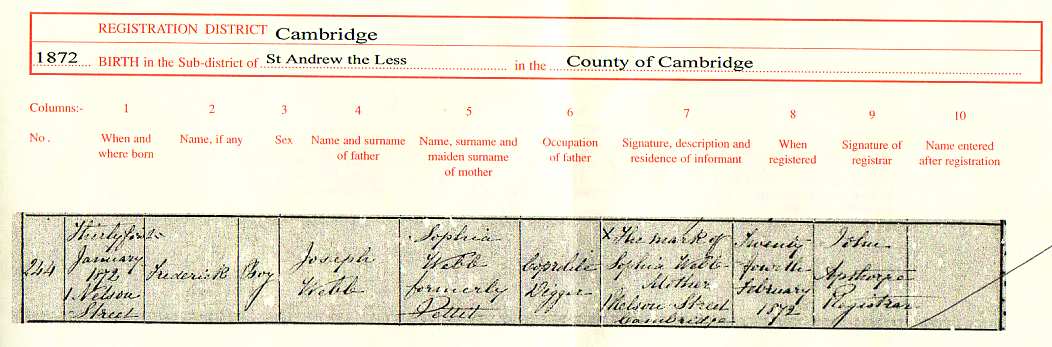 REGISTRATION DISTRICT Cambridge
1872 BIRTH in the Sub-district of St Andrew the Less in the County of Cambridge
Columns:- 1 2 3 4 5 6 7 8 9 10
No. When and where born Name, if any Sex Name and surname of father Name, surname and maiden surname of mother Occupation of father Signature, description and residence of informant When registered Signature of registrar Name entered after registration
244
Thirty first
January
1872
1 Nelson
Street
Frederick
Boy
Joseph
Webb
Sophia
Webb
formerly
Pettit
Coprolite
Digger
X The mark of
Sophia Webb
Mother
1 Nelson Street
Cambridge
Twenty
fourth
February
1872
John
Apthorpe
Registrar